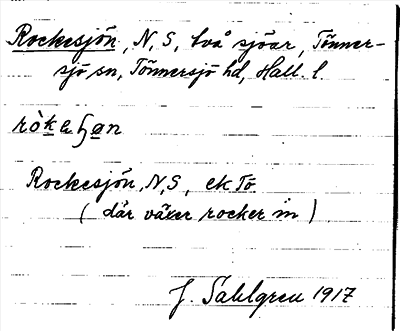 Rockesjön, N, S, två sjöar, Tönner-
sjö sn, Tönnersjö hd, Hall. l.
Rockesjön, N, S, ek To
(där växer rocker in)
J. Sahlgren 1917